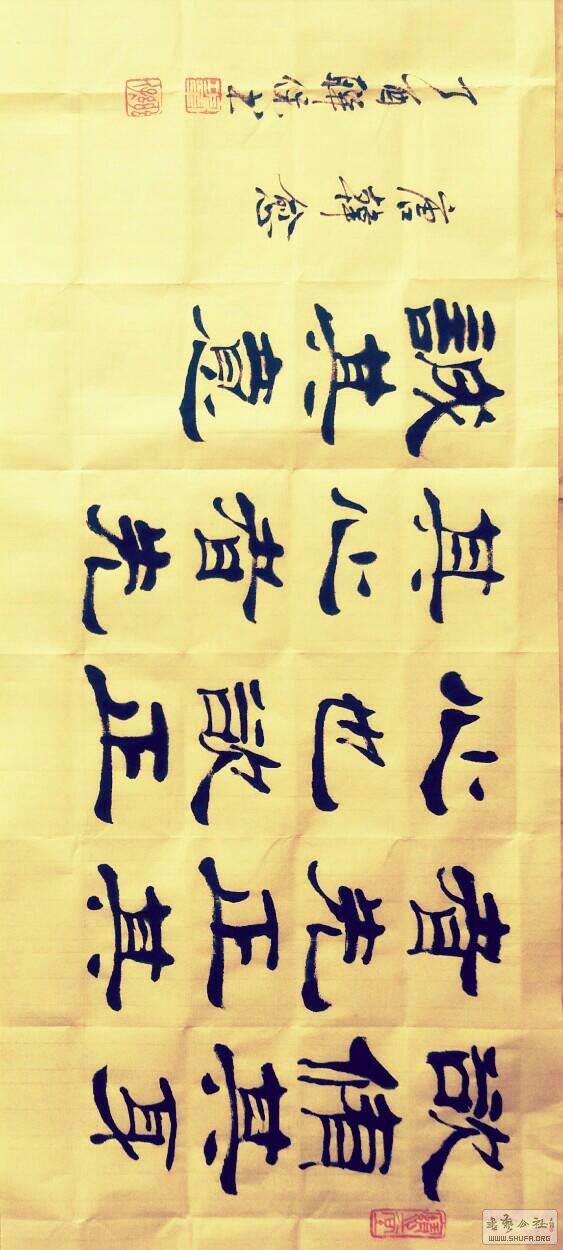 欲脩其身
者先正其
心也欲正
其心者先
誠其意
唐韓愈
丁酉
书艺公社
WWW.SHUFA.ORG